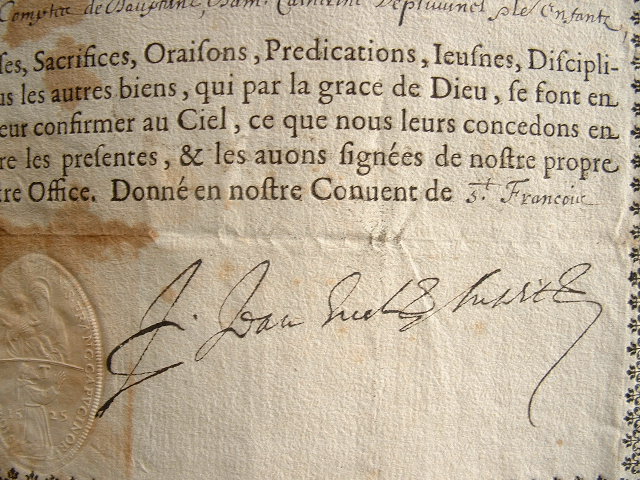 Comptes de Dauphiné, Dam. Catherine de enfants,
ses, Sacrifices, Oraiſons, Predications, Ieuſnes, Diſcipli-
us les autres biens, qui par la grace de Dieu, ſe font en
eur confirmer au Ciel, ce que nous leurs concedons en
re les preſentes, & les auons ſignées de noſtre propre
tre Office. Donné en noſtre Conuent de St. Francois
F. Jean
1625